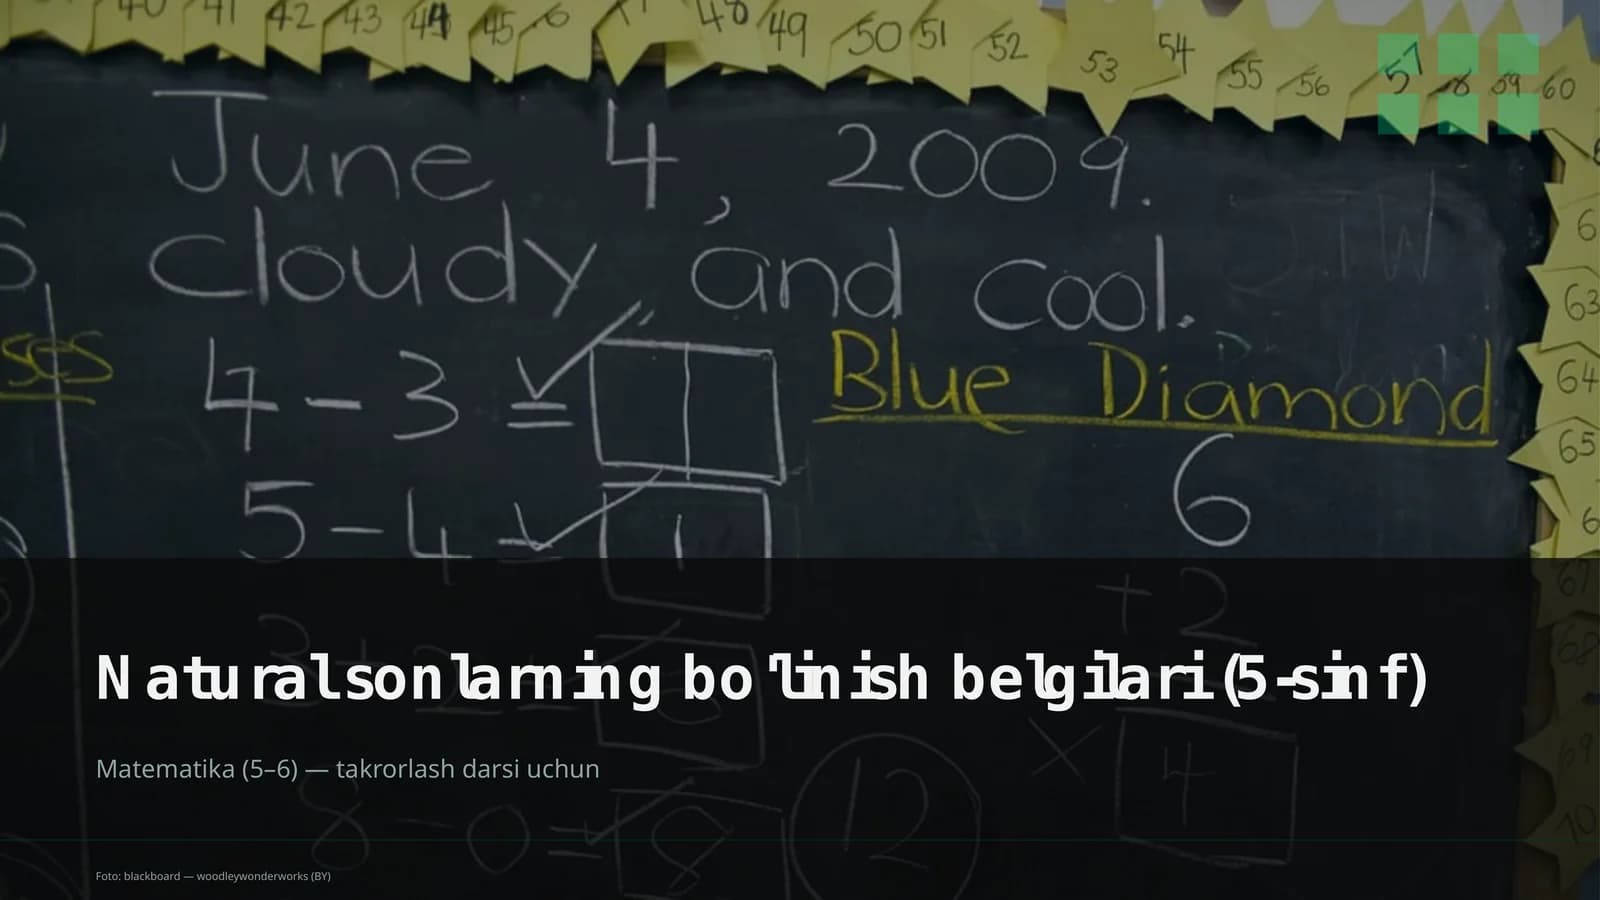 40 41 42 43 44 45 46 48 49 50 51 52 53 54 55 56 57 58 59 60
June 4, 2009.
Cloudy, and cool.
63
ses
4 - 3 =
Blue Diamond
64
65
6
5 - 4 = 1
+ 2
67
68
Naturalsonlarning bo'linish belgilari (5-sinf)
69
× 4
Matematika (5–6) — takrorlash darsi uchun
12
8 - 0 = 8
70
Foto: blackboard — woodleywonderworks (BY)